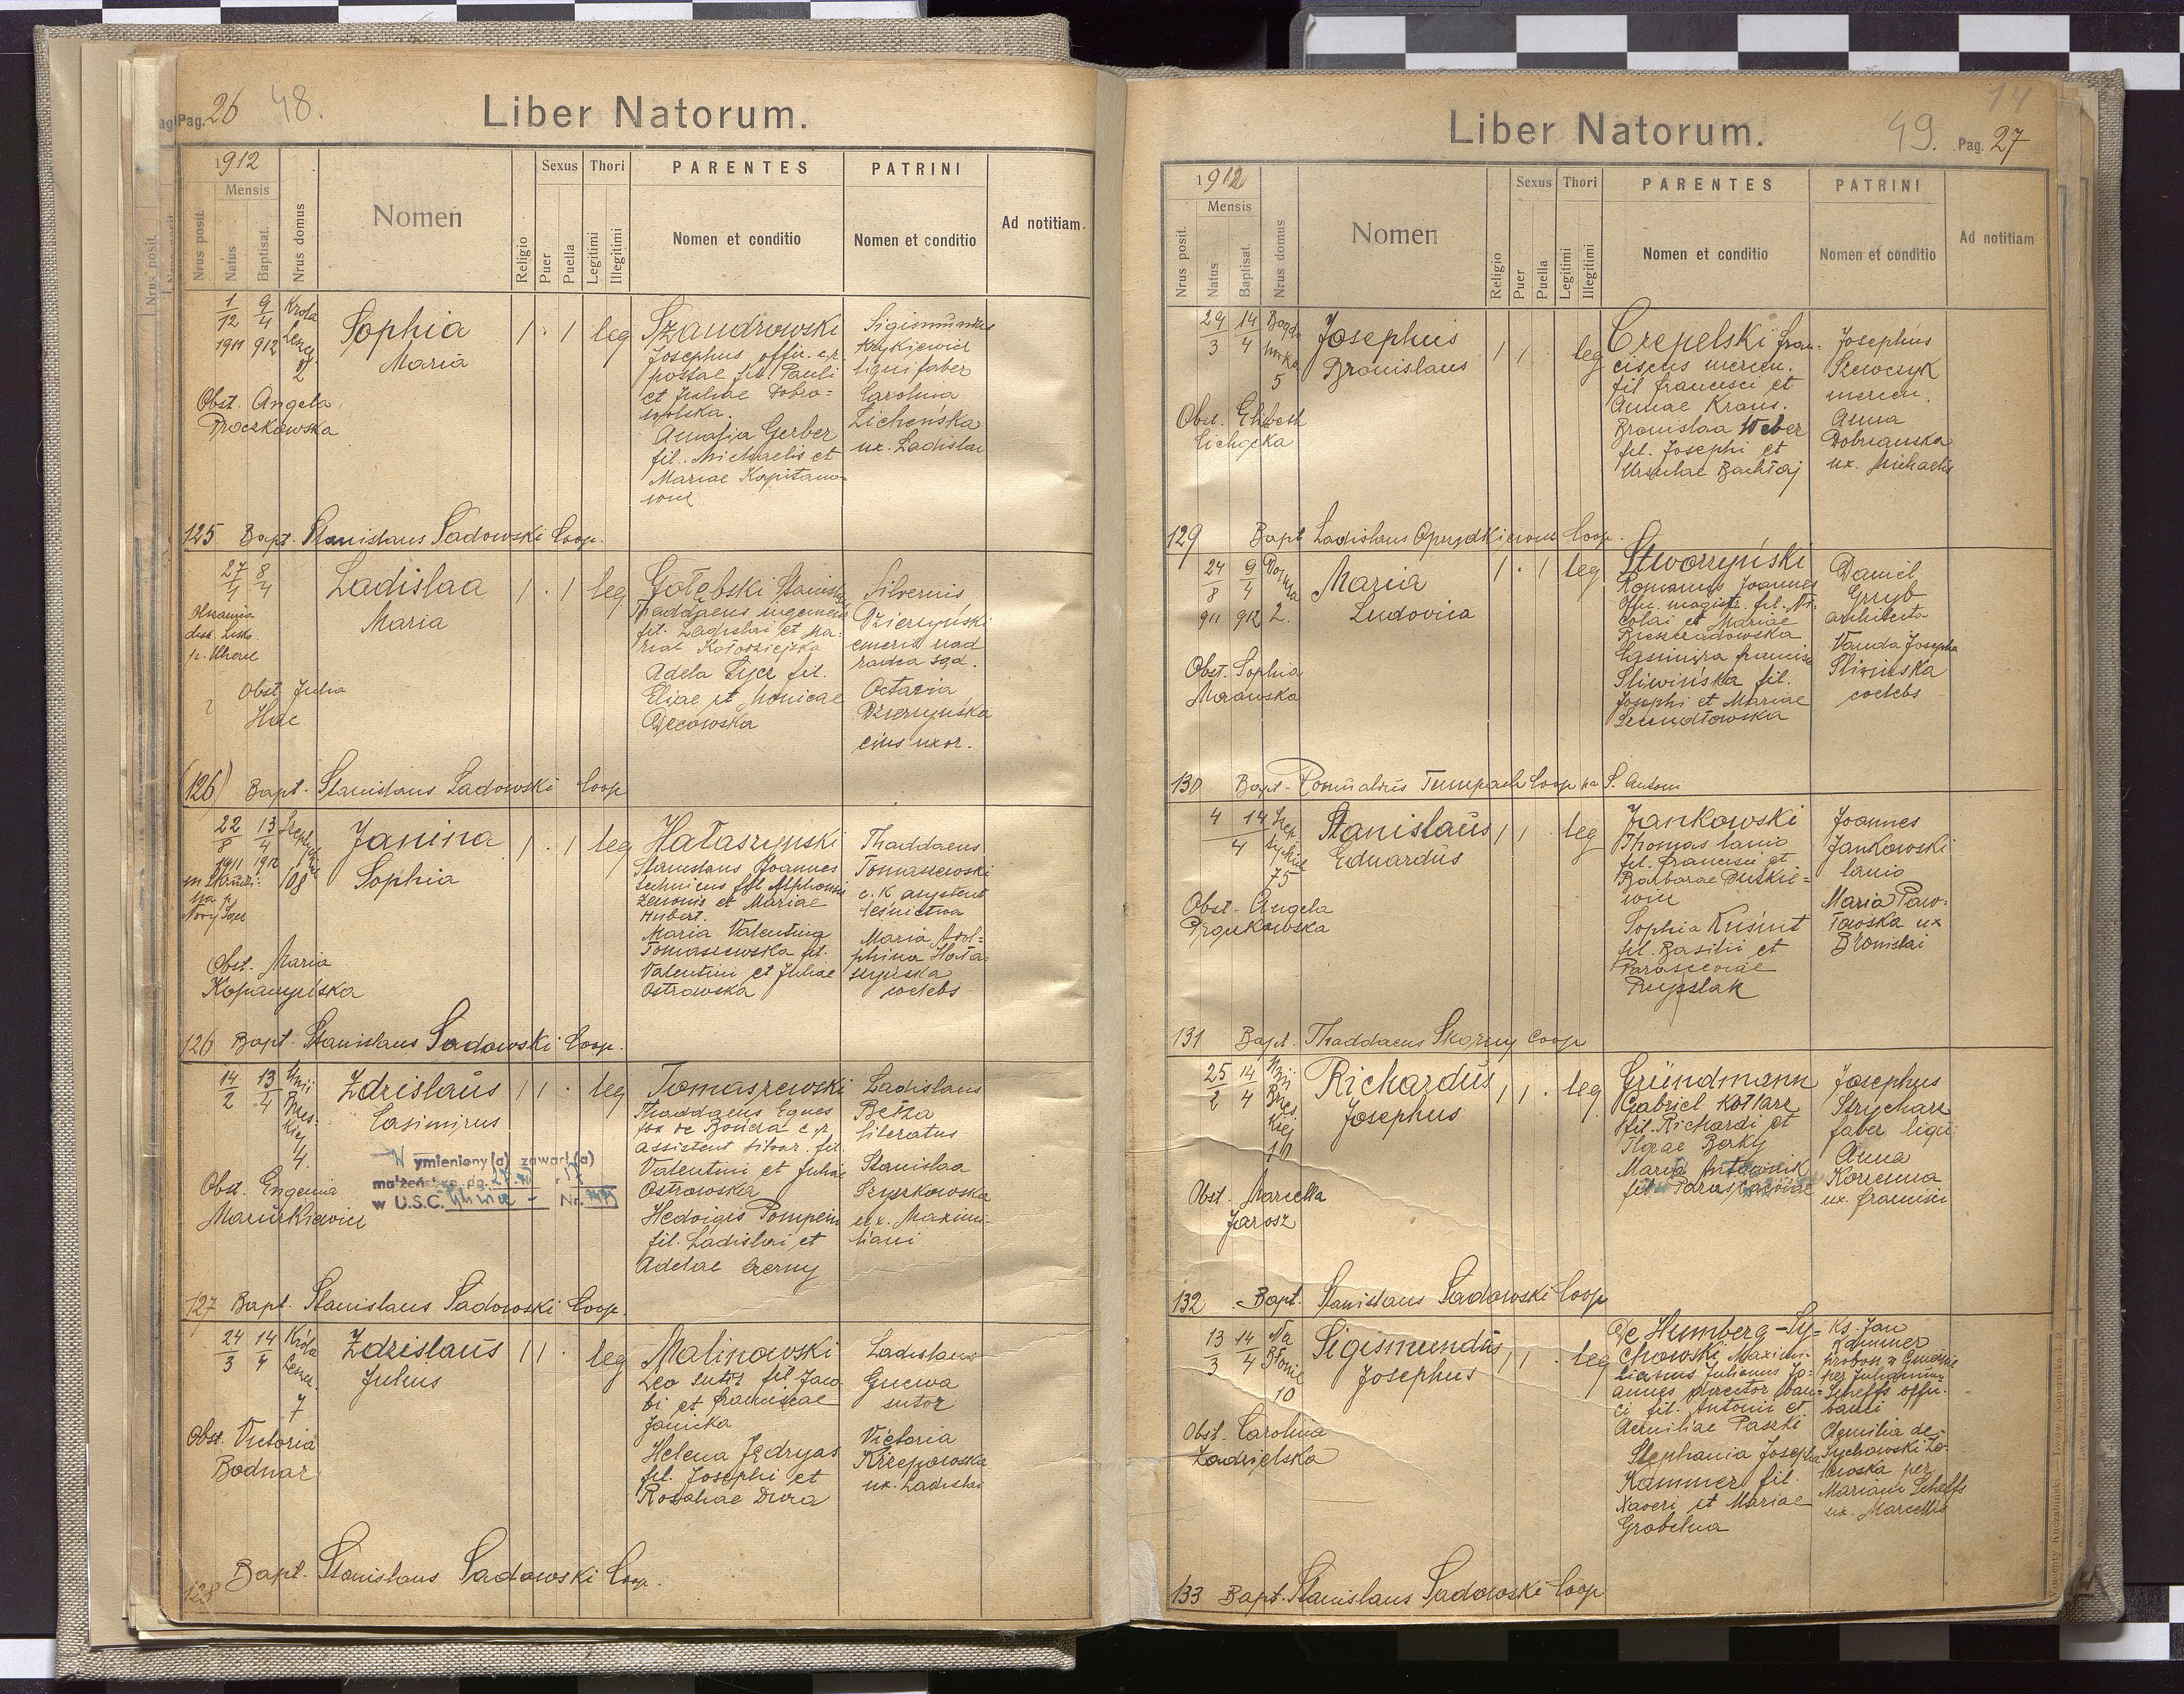 Pag. 26 48.
Liber Natorum.
1912
Mensis
Nrus posit.
Natus
Baptisat.
Nrus domus
Nomen
Religio
Sexus
Puer
Puella
Thori
Legitimi
Illegitimi
PARENTES
Nomen et conditio
PATRINI
Nomen et conditio
Ad notitiam
1/12 1911
9/4 912
2
Sophia
Maria
1 . 1 leg
Obst. Angela
Szandrowski
Josephus offic. c.r.
postae fil. Pauli
et Juliae Dobro=
wolska.
Amalia Gerber
fil. Michaelis et
Mariae Kapitano-
wicz
Sigismundus
ligni faber
Carolina
Zicheńska
ux. Ladislai
125 Bapt. Stanislaus Sadowski Coop.
27/1 8/4
Ladislaa
Maria
1 . 1 leg
Obst Julia
Gołębski Stanisl.
Thaddaeus
fil. Ladislai et Ma-
riae Kołodziejska
Adela
fil.
Eliae et Monicae
emerit nad
radca sąd.
Octavia
Dzierzyńska
eius uxor.
(126) Bapt. Stanislaus Sadowski Coop
22/8 1911
13/4 1912
108
Janina
Sophia
1 . 1 leg
Obst. Maria
Hałaszyński
Stanislaus Joannes
technicus fil Alphonsi
Zenonis et Mariae
Hubert.
Maria Valentina
Tomaszewska fil.
Valentini et Juliae
Ostrowska
Thaddaeus
Tomaszewski
c. k. asystent
leśnictwa
Maria Adol=
phina Hała-
szyńska
coelebs
126 Bapt. Stanislaus Sadowski Coop.
14/2 13/4
Unii
Brzes-
kiej
4.
Zdzislaus
Casimirus
1 1 . leg
Wymieniony(a) zawarł(a)
małżeństwo dn.
w U.S.C. Nr.
Obst. Eugenia
Mazurkiewicz
Tomaszewski
Thaddaeus Eques
de Boncza c.r.
assistent silvar. fil.
Valentini et Juliae
Ostrowska
Hedvigis Pompein
fil. Ladislai et
Adelae Czerny
Ladislaus
Bełza
literatus
Stanislaa
Szyszkowska
ux. Maximi-
liani
127 Bapt. Stanislaus Sadowski Coop.
24/3 14/4
Króla
Leszcz.
7
Zdzislaus
Julius
1 1 . leg
Obst. Victoria
Bodnar
Malinowski
Leo sutor fil Jaco
bi et Franciscae
Janicka
Helena Jędryas
fil. Josephi et
Rosaliae Dura
Ladislaus
sutor
Victoria
ux. Ladislai
128 Bapt. Stanislaus Sadowski Coop.
14
Liber Natorum.
49. Pag. 27
1912
Mensis
Nrus posit.
Natus
Baptisat.
Nrus domus
Nomen
Religio
Sexus
Puer
Puella
Thori
Legitimi
Illegitimi
PARENTES
Nomen et conditio
PATRINI
Nomen et conditio
Ad notitiam
29/3 14/4
5
Josephus
Bronislaus
1 1 . leg
Obst.
Czepelski Fran-
ciscus mercen.
fil Francisci et
Annae Kraus.
Bronislaa Weber
fil. Josephi et
Ursulae
Josephus
Szewczyk
mercen.
Anna
Dobrzanska
ux. Michaelis
129 Bapt Ladislaus Coop.
24/8 911
9/4 912
2.
Maria
Ludovica
1 . 1 leg
Obst. Sophia
Stworzyński
Romanus Joannes
Offic. magistr. fil. Ni-
colai et Mariae
Casimira Francisca
Śliwińska fil.
Josephi et Mariae
Daniel
Gryb
architecta
Vanda Josepha
Śliwińska
coelebs
130 Bapt. Romualdus Coop. na S. Antoni
4 14/4
75
Stanislaus
Eduardus
1 1 . leg
Obst. Angela
Jankowski
Thomas lanio
fil. Francisci et
Barbarae Dutkie=
wicz
Sophia Kuśnit
fil. Basilii et
Parasceviae
Joannes
Jankowski
lanio
Maria Paw-
łowska ux
Bronislai
131 Bapt. Thaddaeus Skorny Coop
25/2 14/4
Unii
Brzes
kiej
10
Richardus
Josephus
1 1 . leg
Obst. Marcella
Jarosz
Gründmann
Gabriel
fil. Richardi et
Berky
Maria Antonik
fil. Paraskeviae
Josephus
Strycharz
faber lign.
Anna
ux. Francisci
132 Bapt. Stanislaus Sadowski Coop
13/3 14/4
Na
Błonie
10
Sigismundus
Josephus
1 1 . leg
Obst. Carolina
Zadzielska
de Humberg-Sy=
chowski Maximi-
lianus Julianus Jo-
annes director ban-
ci fil. Antonii et
Aemiliae Paszki
Stephania Josepha
Kammer fil.
Xaveri et Mariae
Grobelna
Ks. Jan
Kammer
per Julianum
Scheffs offic.
banci
Aemilia de
Sychowski
per
Mariam Scheffs
ux. Marcellis
133 Bapt. Stanislaus Sadowski Coop